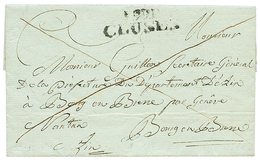 CLUSES
Monsieur
Monsieur Guillon Secretaire General
De la Prefecture du Département De l'Ain
à Bourg en Bresse par Genève
Nantua
Ain
Bourg en Bresse